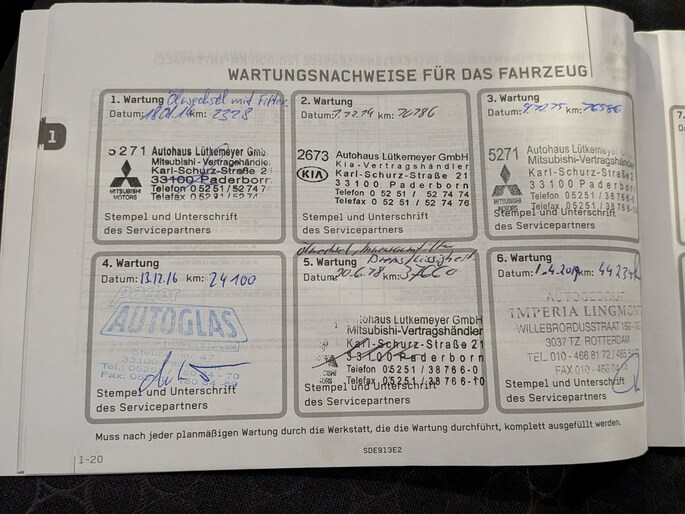 WARTUNGSNACHWEISE FÜR DAS FAHRZEUG
1
1. Wartung Ölwechsel mit Filter
Datum: 18.01.14 km: 2328
5271 Autohaus Lütkemeyer GmbH
Mitsubishi-Vertragshändler
Karl-Schurz-Straße 21
33100 Paderborn
Telefon 05251/52747
Telefax 05251/52747
MITSUBISHI
MOTORS
Stempel und Unterschrift
des Servicepartners
2. Wartung
Datum: km:
2673 Autohaus Lütkemeyer GmbH
KIA Kia-Vertragshändler
Karl-Schurz-Straße 21
33100 Paderborn
Telefon 05251/52 74 74
Telefax 05251/52 74 76
Stempel und Unterschrift
des Servicepartners
3. Wartung
Datum: km:
5271 Autohaus Lütkemeyer
Mitsubishi-Vertragshändler
Karl-Schurz-Straße 21
33100 Paderborn
Telefon 05251/38766-0
Telefax 05251/38766-10
MITSUBISHI
MOTORS
Stempel und Unterschrift
des Servicepartners
4. Wartung
Datum: 13.12.16 km: 24100
AUTOGLAS
Stempel und Unterschrift
des Servicepartners
Ölwechsel, Innenraumfilter
5. Wartung Bremsflüssigkeit
Datum: 20.6.18 km:
Autohaus Lütkemeyer GmbH
Mitsubishi-Vertragshändler
Karl-Schurz-Straße 21
33100 Paderborn
Telefon 05251/38766-0
Telefax 05251/38766-10
Stempel und Unterschrift
des Servicepartners
6. Wartung
Datum: 1.4.2019 km: 44234
AUTOBEDRIJF
IMPERIA LINGMONT
WILLEBRORDUSSTRAAT
3037 TZ ROTTERDAM
TEL. 010 - 466 81 72
FAX 010 - 466
Stempel und Unterschrift
des Servicepartners
Muss nach jeder planmäßigen Wartung durch die Werkstatt, die die Wartung durchführt, komplett ausgefüllt werden.
1-20
SDE913E2